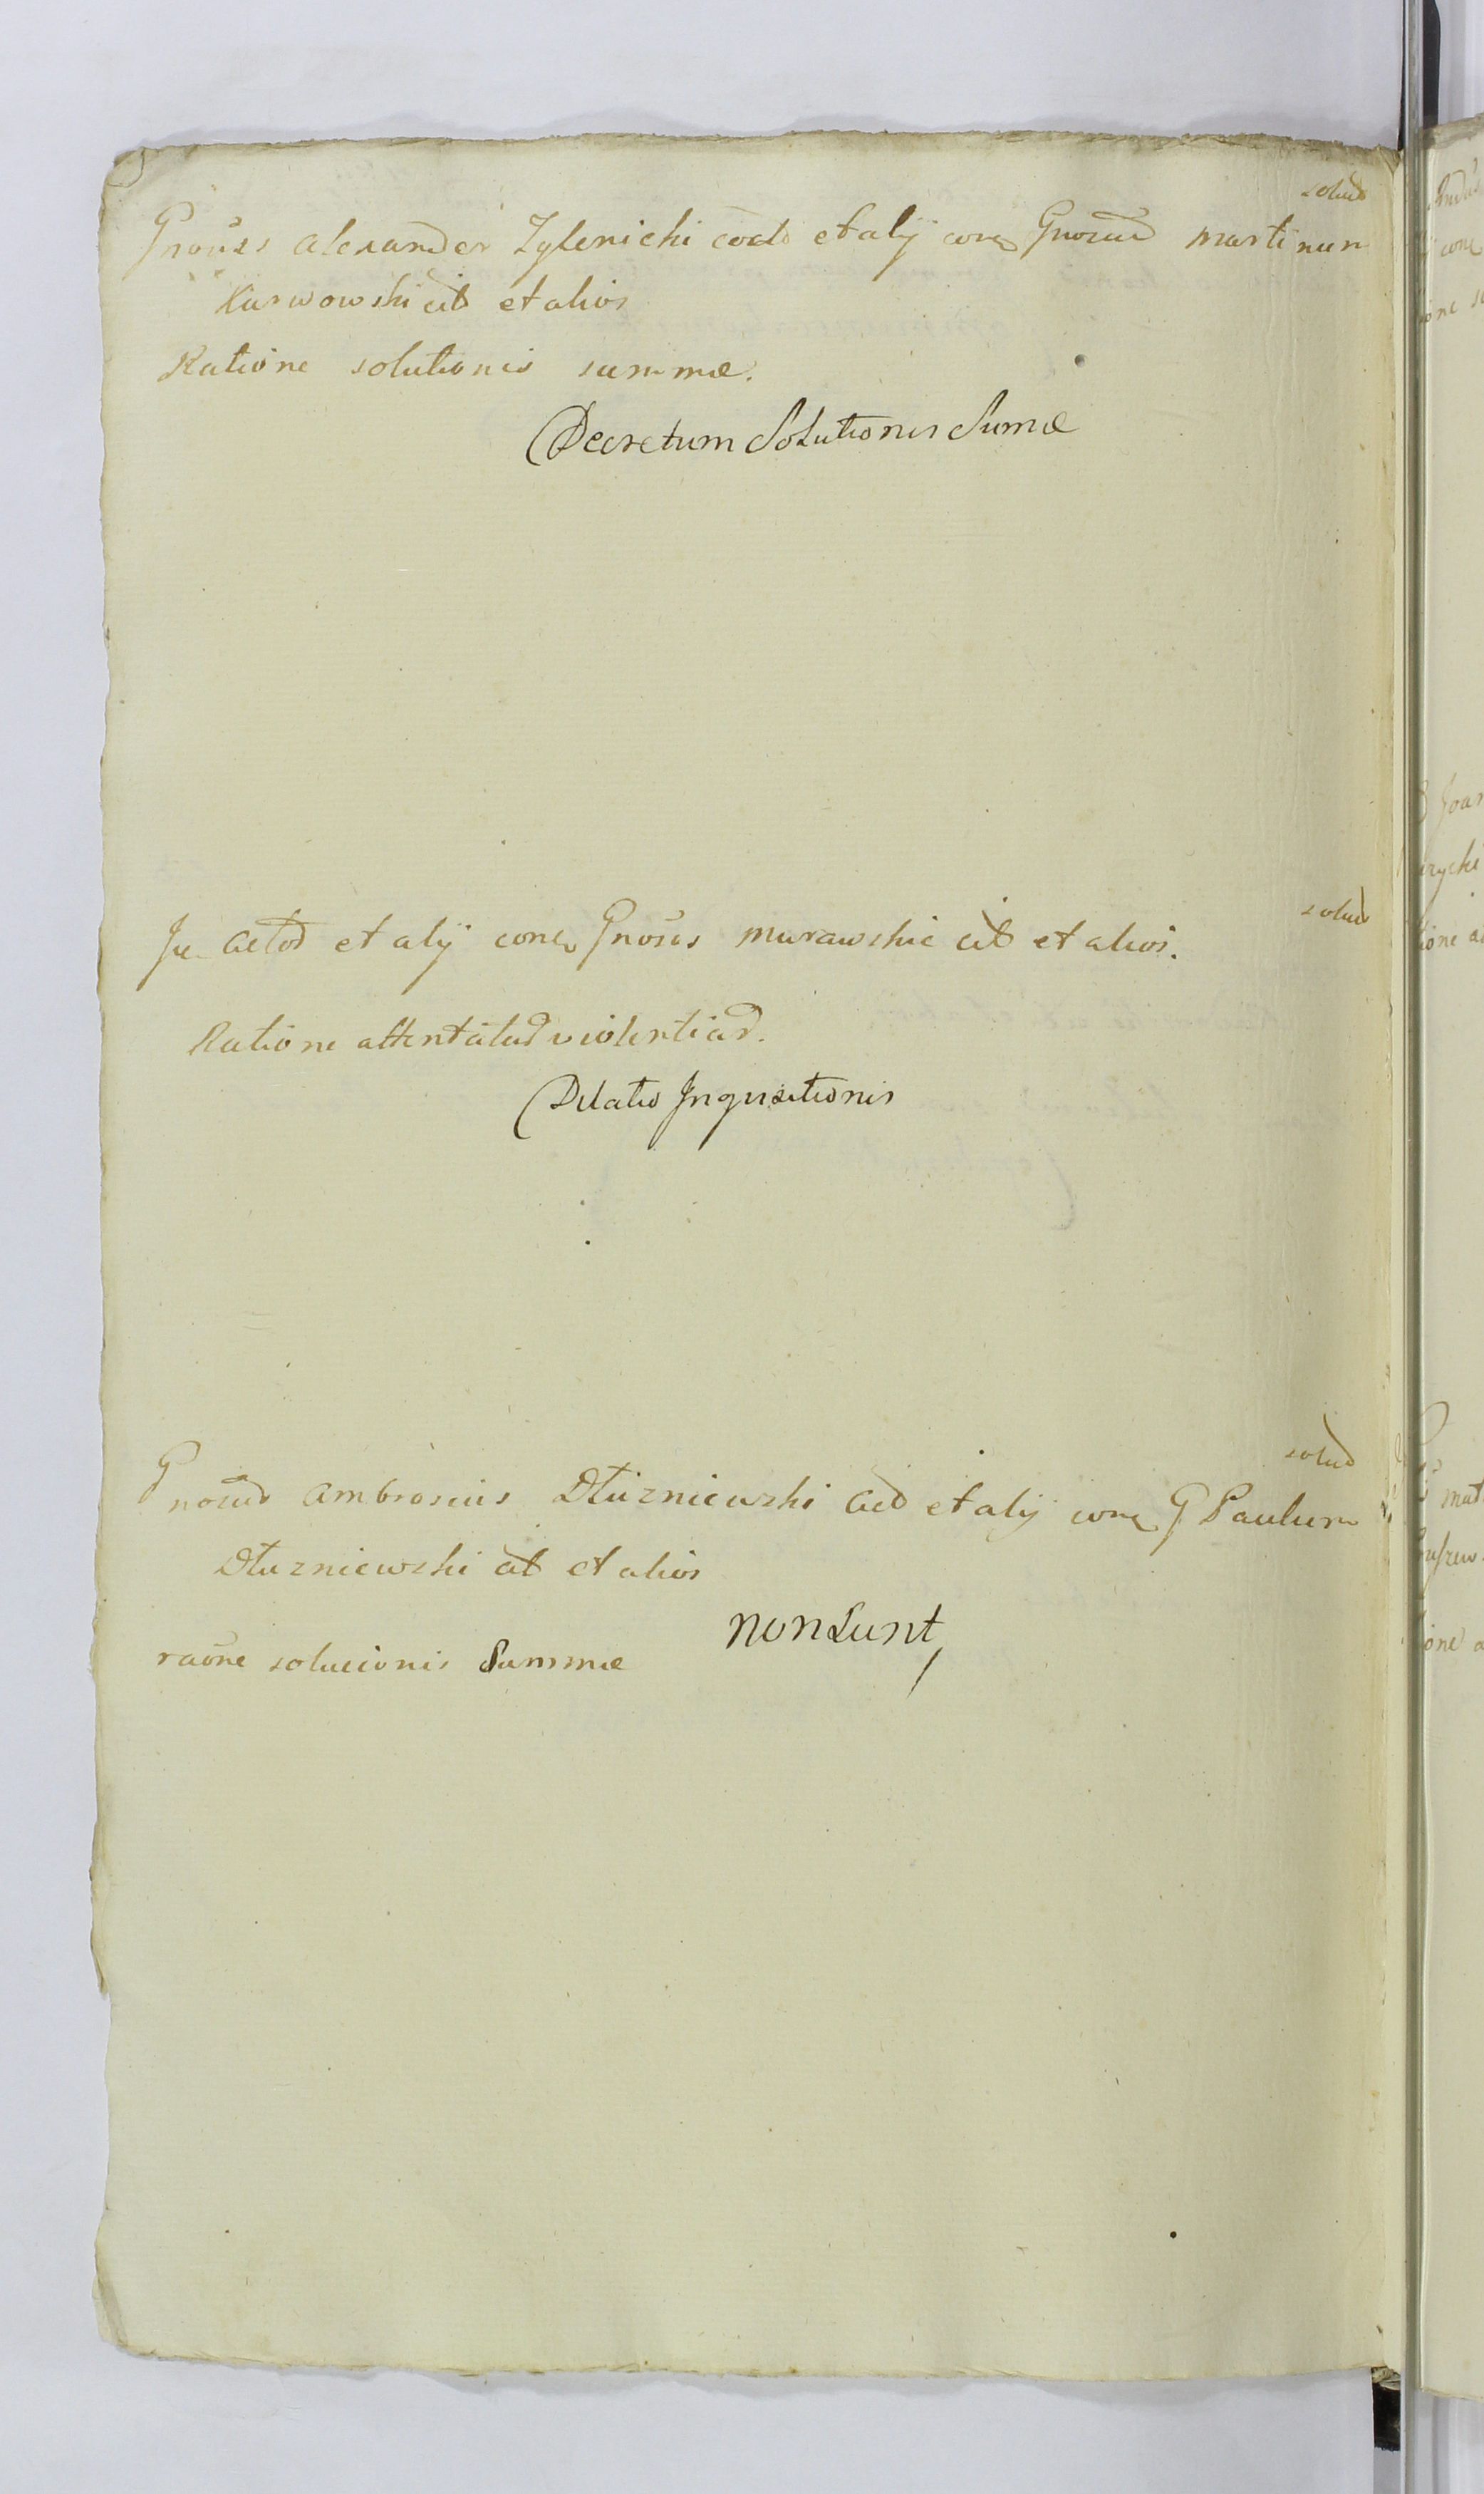 solud
Gnosus Alexander Zylinichi et alij cone Gnosum Martinum
Karwowski cit et alios
Ratione solutionis summæ.
Decretum Solutionis Sumæ
solud
Ju Actos et alij cone Gnosos Murawskie cit et alios.
Ratione attentatus violentias.
Dilatio Inquisitionis
solud
Gnosus Ambrosius Dłuzniewski Act et alij cone G Paulum
Dłuzniewski cit et alios
non sunt
raõne solucionis Summæ